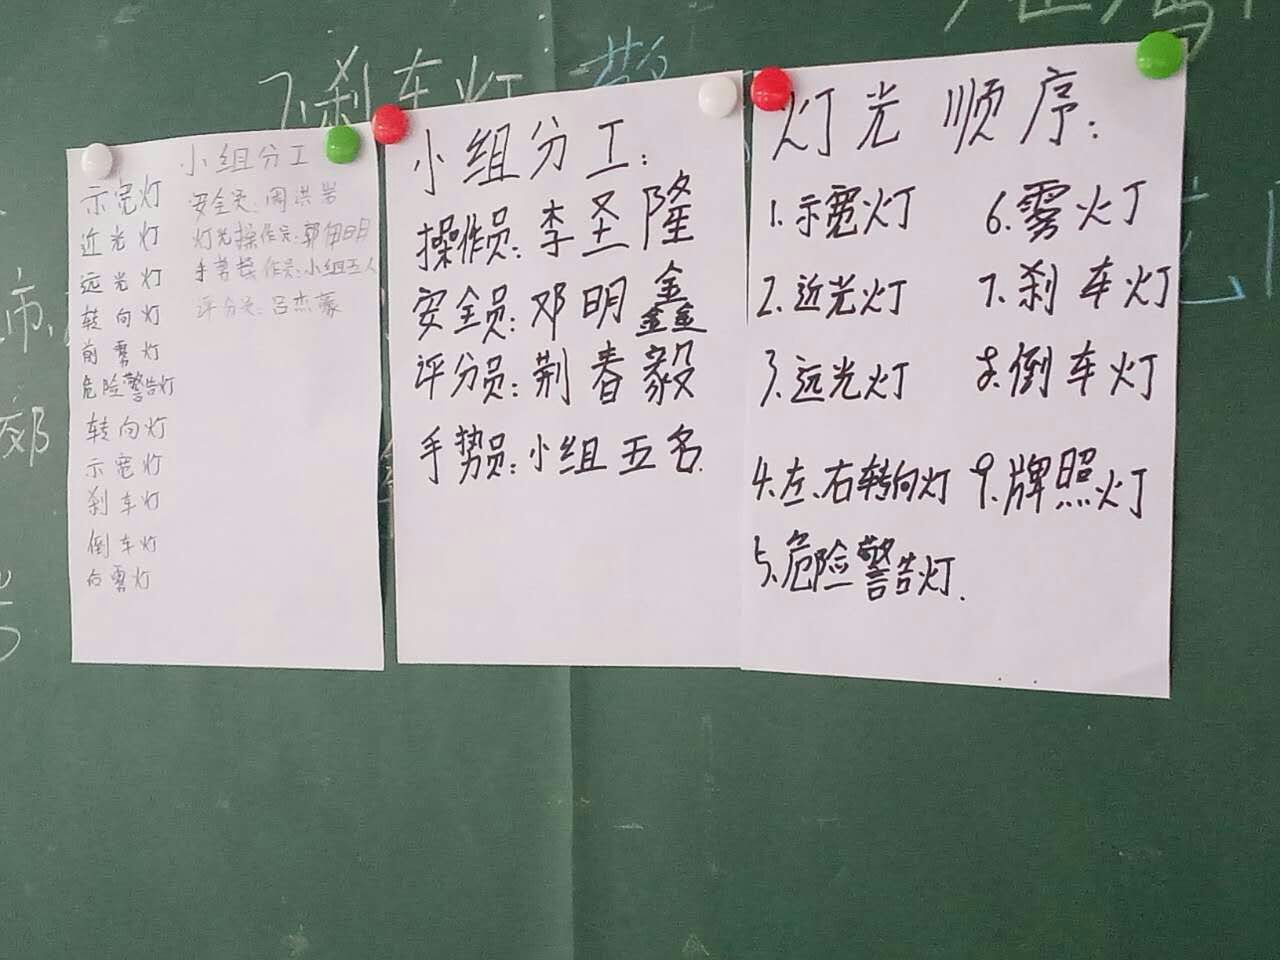 7.刹车灯
小组分工
示宽灯
近光灯
远光灯
转向灯
前雾灯
危险警告灯
转向灯
示宽灯
刹车灯
倒车灯
后雾灯
安全员:周洪岩
灯光操作员:郭伊明
手势操作员:小组五人
评分员:吕杰蒙
小组分工:
操作员:李圣隆
安全员:邓明鑫鑫
评分员:荆春毅
手势员:小组五名.
灯光顺序:
1.示宽灯
2.近光灯
3.远光灯
4.左、右转向灯
5.危险警告灯.
6.雾灯
7.刹车灯
8.倒车灯
9.牌照灯